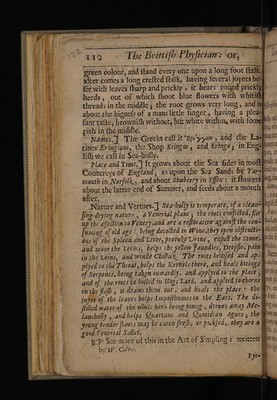 122
112 The Brittish Physician: or,
green colour, and stand every one upon a long foot stalk,
after comes a long crested stalk, having several joynts be-
set with leaves sharp and prickly, it bears round prickly
heads, out of which shoot blue flowers with whitish
threds in the middle; the root grows very long, and is
about the bigness of a mans little finger, having a plea-
sant taste, brownish without, but white within, with some
pith in the middle.
Names.] The Greeks call it and the La-
tines Eringium, the Shop Eringus, and Eringe; in Eng-
lish we call it Sea-holly.
Place and Time.] It grows about the Sea sides in most
Countreys of England, as upon the Sea Sands by Yar-
mouth in Norfolk, and about in Essex: it flowers
about the latter end of Summer, and seeds about a month
after.
Nature and Vertues.] Sea-holly is temperate, of a clean-
sing drying nature, a Venerial plant; the roots confected, stir
up the affection to Venery, and are a restorative against the con-
suming of old age: being decocted in Wine, they open obstructi-
ons of the Spleen and Liver, provoke Urine, expell the stone,
and move the terms, helps the yellow Jaundies, Dropsies, pains
in the loins, and winde Chollick. The roots bruised and ap-
plyed to the Throat, helps the Kernels there, and heals bitings
of Serpents, being taken inwardly, and applyed to the place;
and if the roots be boiled in Hogs Lard, and applied to thorns
in the flesh, it draws them out, and heals the place: the
juyce of the leaves helps Imposthumes in the Ears. The di-
stilled water of the whole herb being young, drives away Me-
lancholly, and helps Quartans and Quotidian Agues; the
young tender shoots may be eaten fresh, or pickled, they are a
good Venerial Sallet.
See more of this in the Art of Simpling written
by W. Coles.